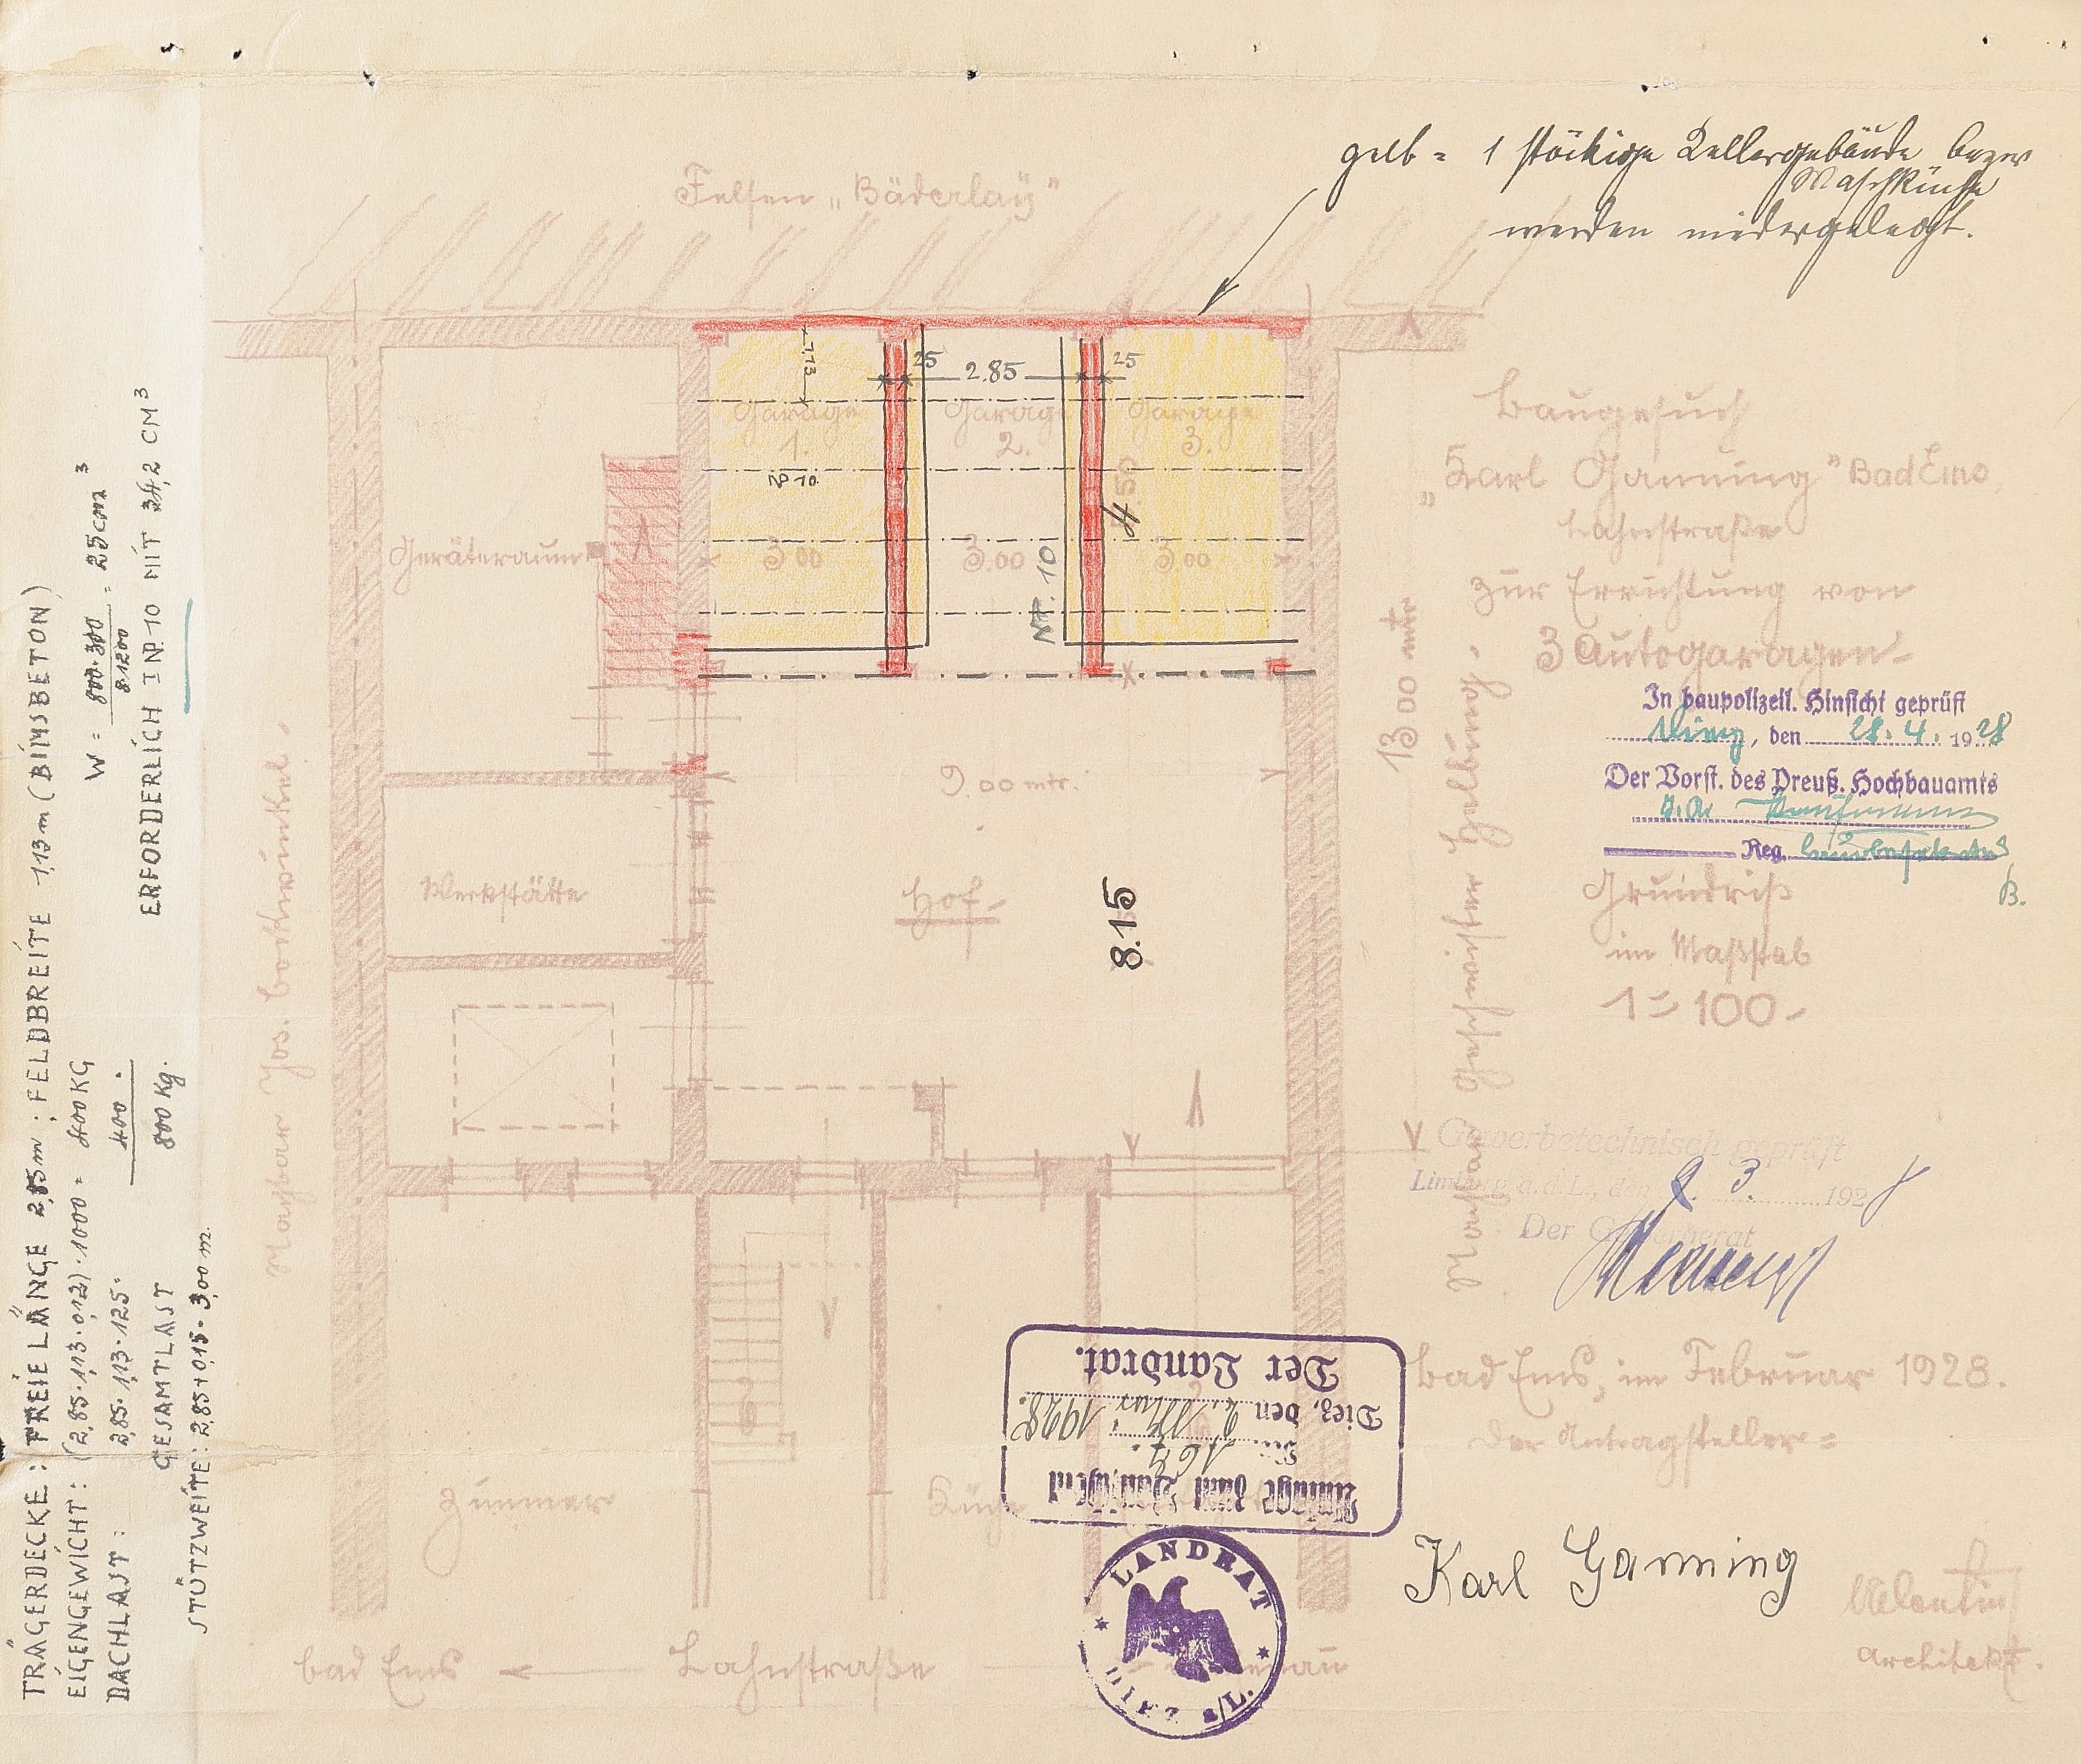 gelb = 1 stöckige Kellergebäude bezw
Waschküche
werden niedergelegt.
Felsen „Bäderlay"
Baugesuch
„Karl Ganning" Bad Ems
Lahnstraße
zur Errichtung von
3 Autogaragen-
In baupolizeil. Hinsicht geprüft
Diez, den 28. 4. 1928
Der Vorst. des Preuß. Hochbauamts
Reg.
B.
Grundriß
im Maßstab
1 = 100-
Gewerbetechnisch geprüft
Limburg a. d. L., den 9. 3. 1928
Der Gewerberat
Bad Ems, im Februar 1928.
Der Antragsteller =
Karl Ganning
Architekt.
25
2.85
25
1,13
Garage
1.
Garage
2.
Garage
3.
NP. 10
4.50
3.00
3.00
3.00
NP. 10
Geräteraum
9.00 mtr.
13 00 mtr
Werkstätte
Hof-
8.15
Nachbar Jos. Bockwinkel.
Nachbar Geschwister
Zimmer
Küche
Bad Ems
Lahnstraße
Anlage zum Bauschein
Nr. 167.
Diez, den 2. Mai 1928.
Der Landrat.
LANDRAT
DIEZ a/L.
TRÄGERDECKE : FREIE LÄNGE 2,85m ; FELDBREITE 1,13m (BIMSBETON)
EIGENGEWICHT : (2,85 · 1,13 · 0,12) · 1000 = 400 KG
DACHLAST : 2,85 · 1,13 · 125 · 400 .
GESAMTLAST 800 Kg.
STÜTZWEITE : 2,85 + 0,15 = 3,00 m.
W = 800·300 / 8·1200 = 25 cm³
ERFORDERLICH I NP. 10 MIT 34,2 CM³